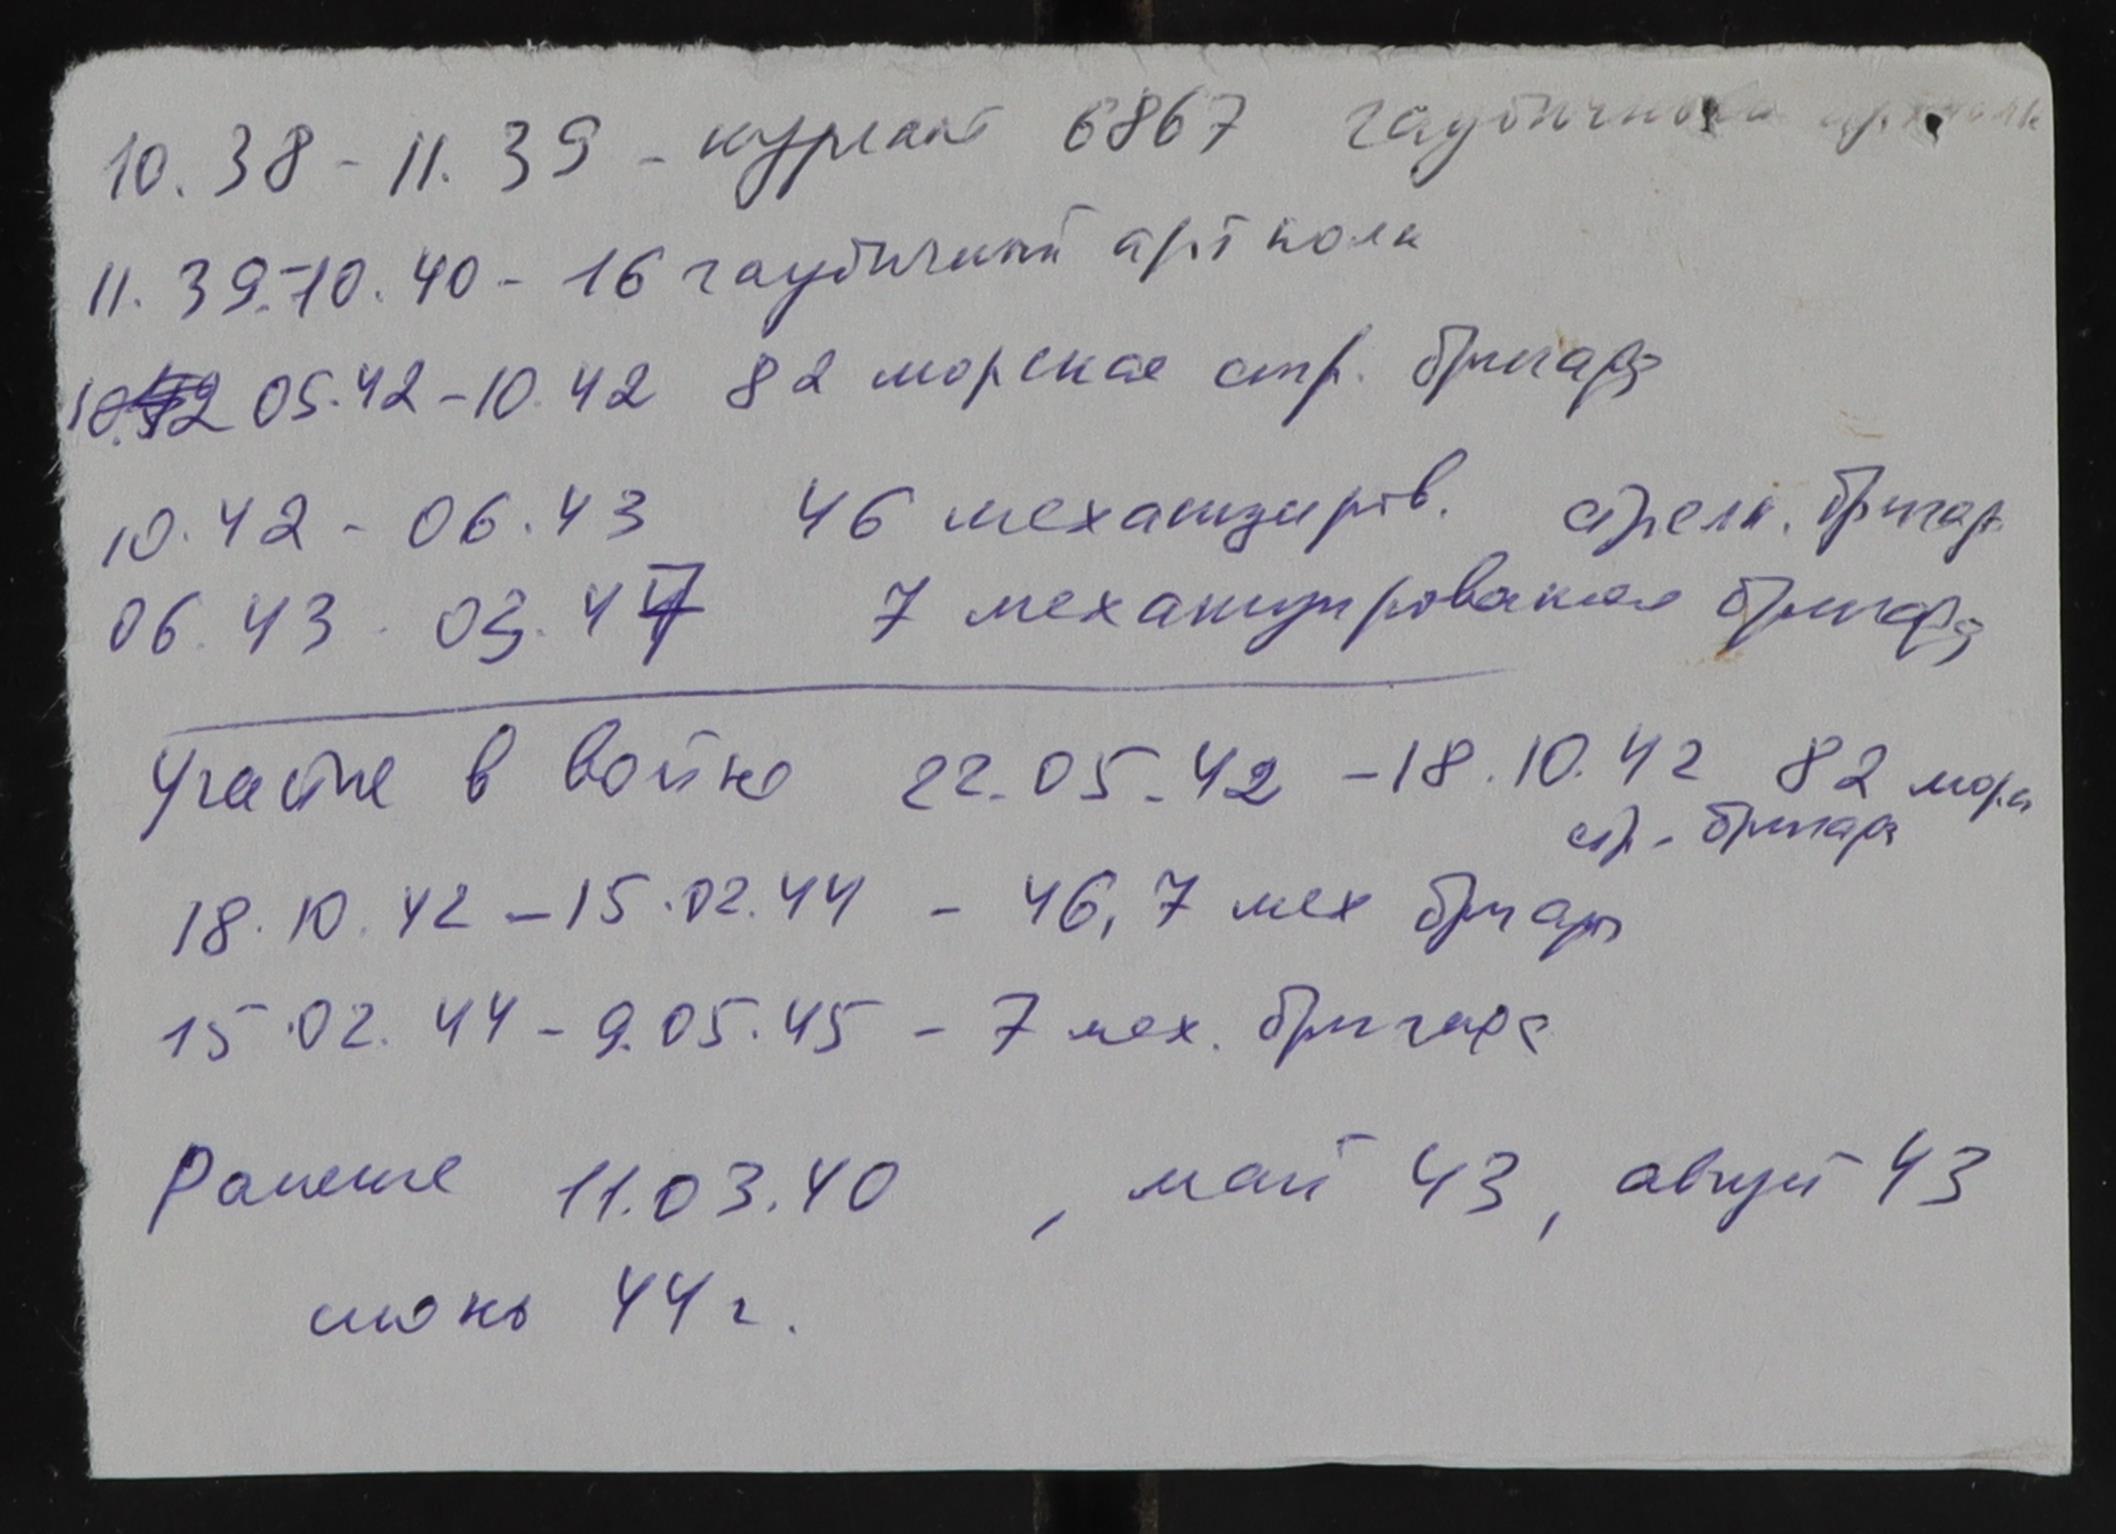 10.38 - 11.39 - курсант 6867 гаубичного арт. полк
11.39.-10.40 - 16 гаубичный арт полк
05.42-10.42 82 морская стр. бригада
10.42 - 06.43 46 механизиров. стрелк. бригад.
06.43 - 03.47 7 механизированная бригада
Участие в войне 22.05.42 - 18.10.42 82 морск
стр. бригада
18.10.42 - 15.02.44 - 46, 7 мех бригады
15.02.44 - 9.05.45 - 7 мех. бригада
Ранение 11.03.40 , май 43, август 43
июнь 44 г.